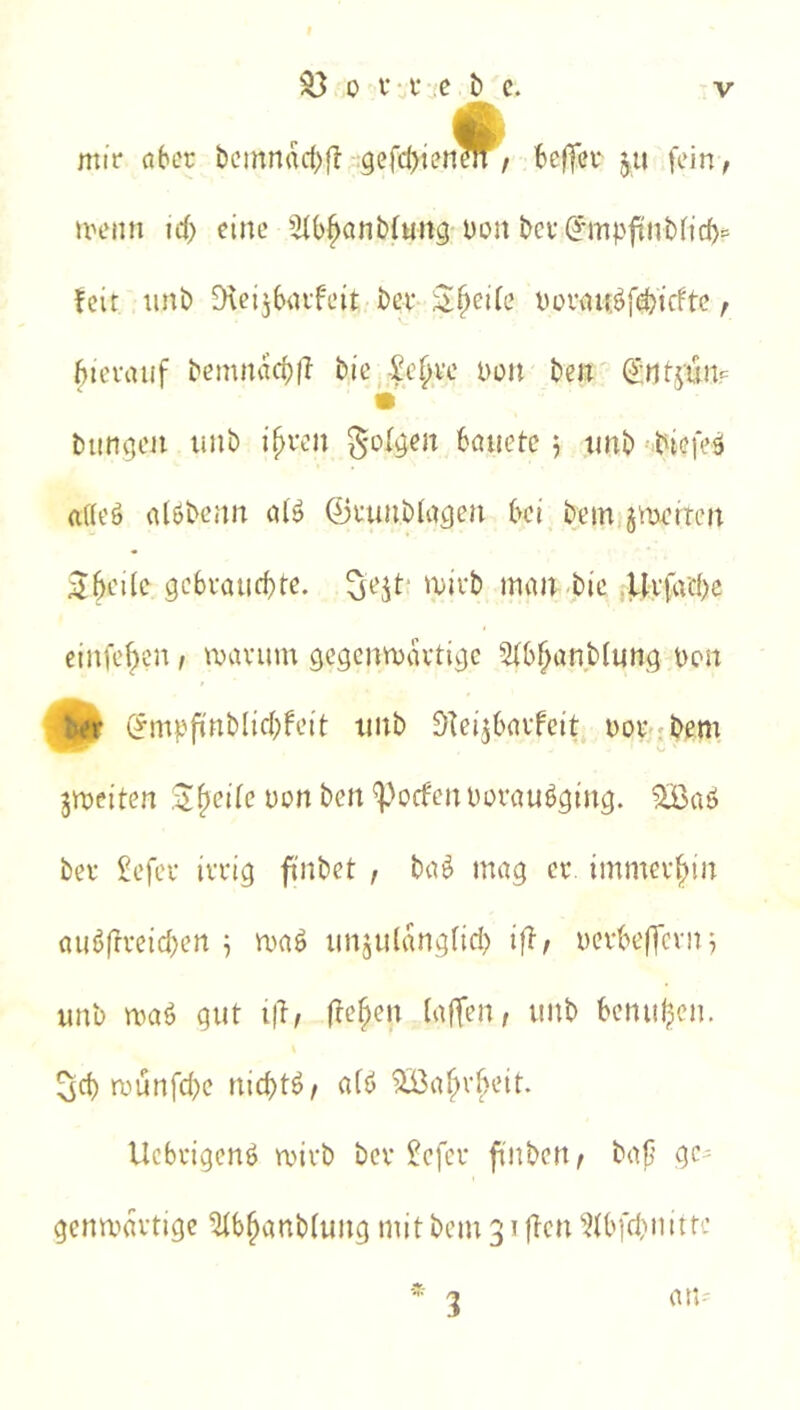 Vorrede. v
mir aber demnächst geschienen, besser zu sein,
wenn ich eine Abhandlung von der Empfindlich-
keit und Reizbarkeit der Theile vorausschickte,
hierauf demnächst die Lehre von den Entzün-
dungen und ihren Folgen bauete; und dieses
alles alsdenn als Grundlagen bei dem zweiten
Theile gebrauchte. Jezt wird man die Ursache
einsehen, warum gegenwärtige Abhandlung von
der Empfindlichkeit und Reizbarkeit vor dem
zweiten Theile von den Pocken vorausging. Was
der Leser irrig findet, das mag er immerhin
ausstreichen; was unzulänglich ist, verbessern;
und was gut ist, stehen lassen, und benutzen.
Ich wünsche nichts, als Wahrheit.
Uebrigens wird der Leser finden, daß ge-
genwärtige Abhandlung mit dem 31sten Abschnitte
* 3 an-